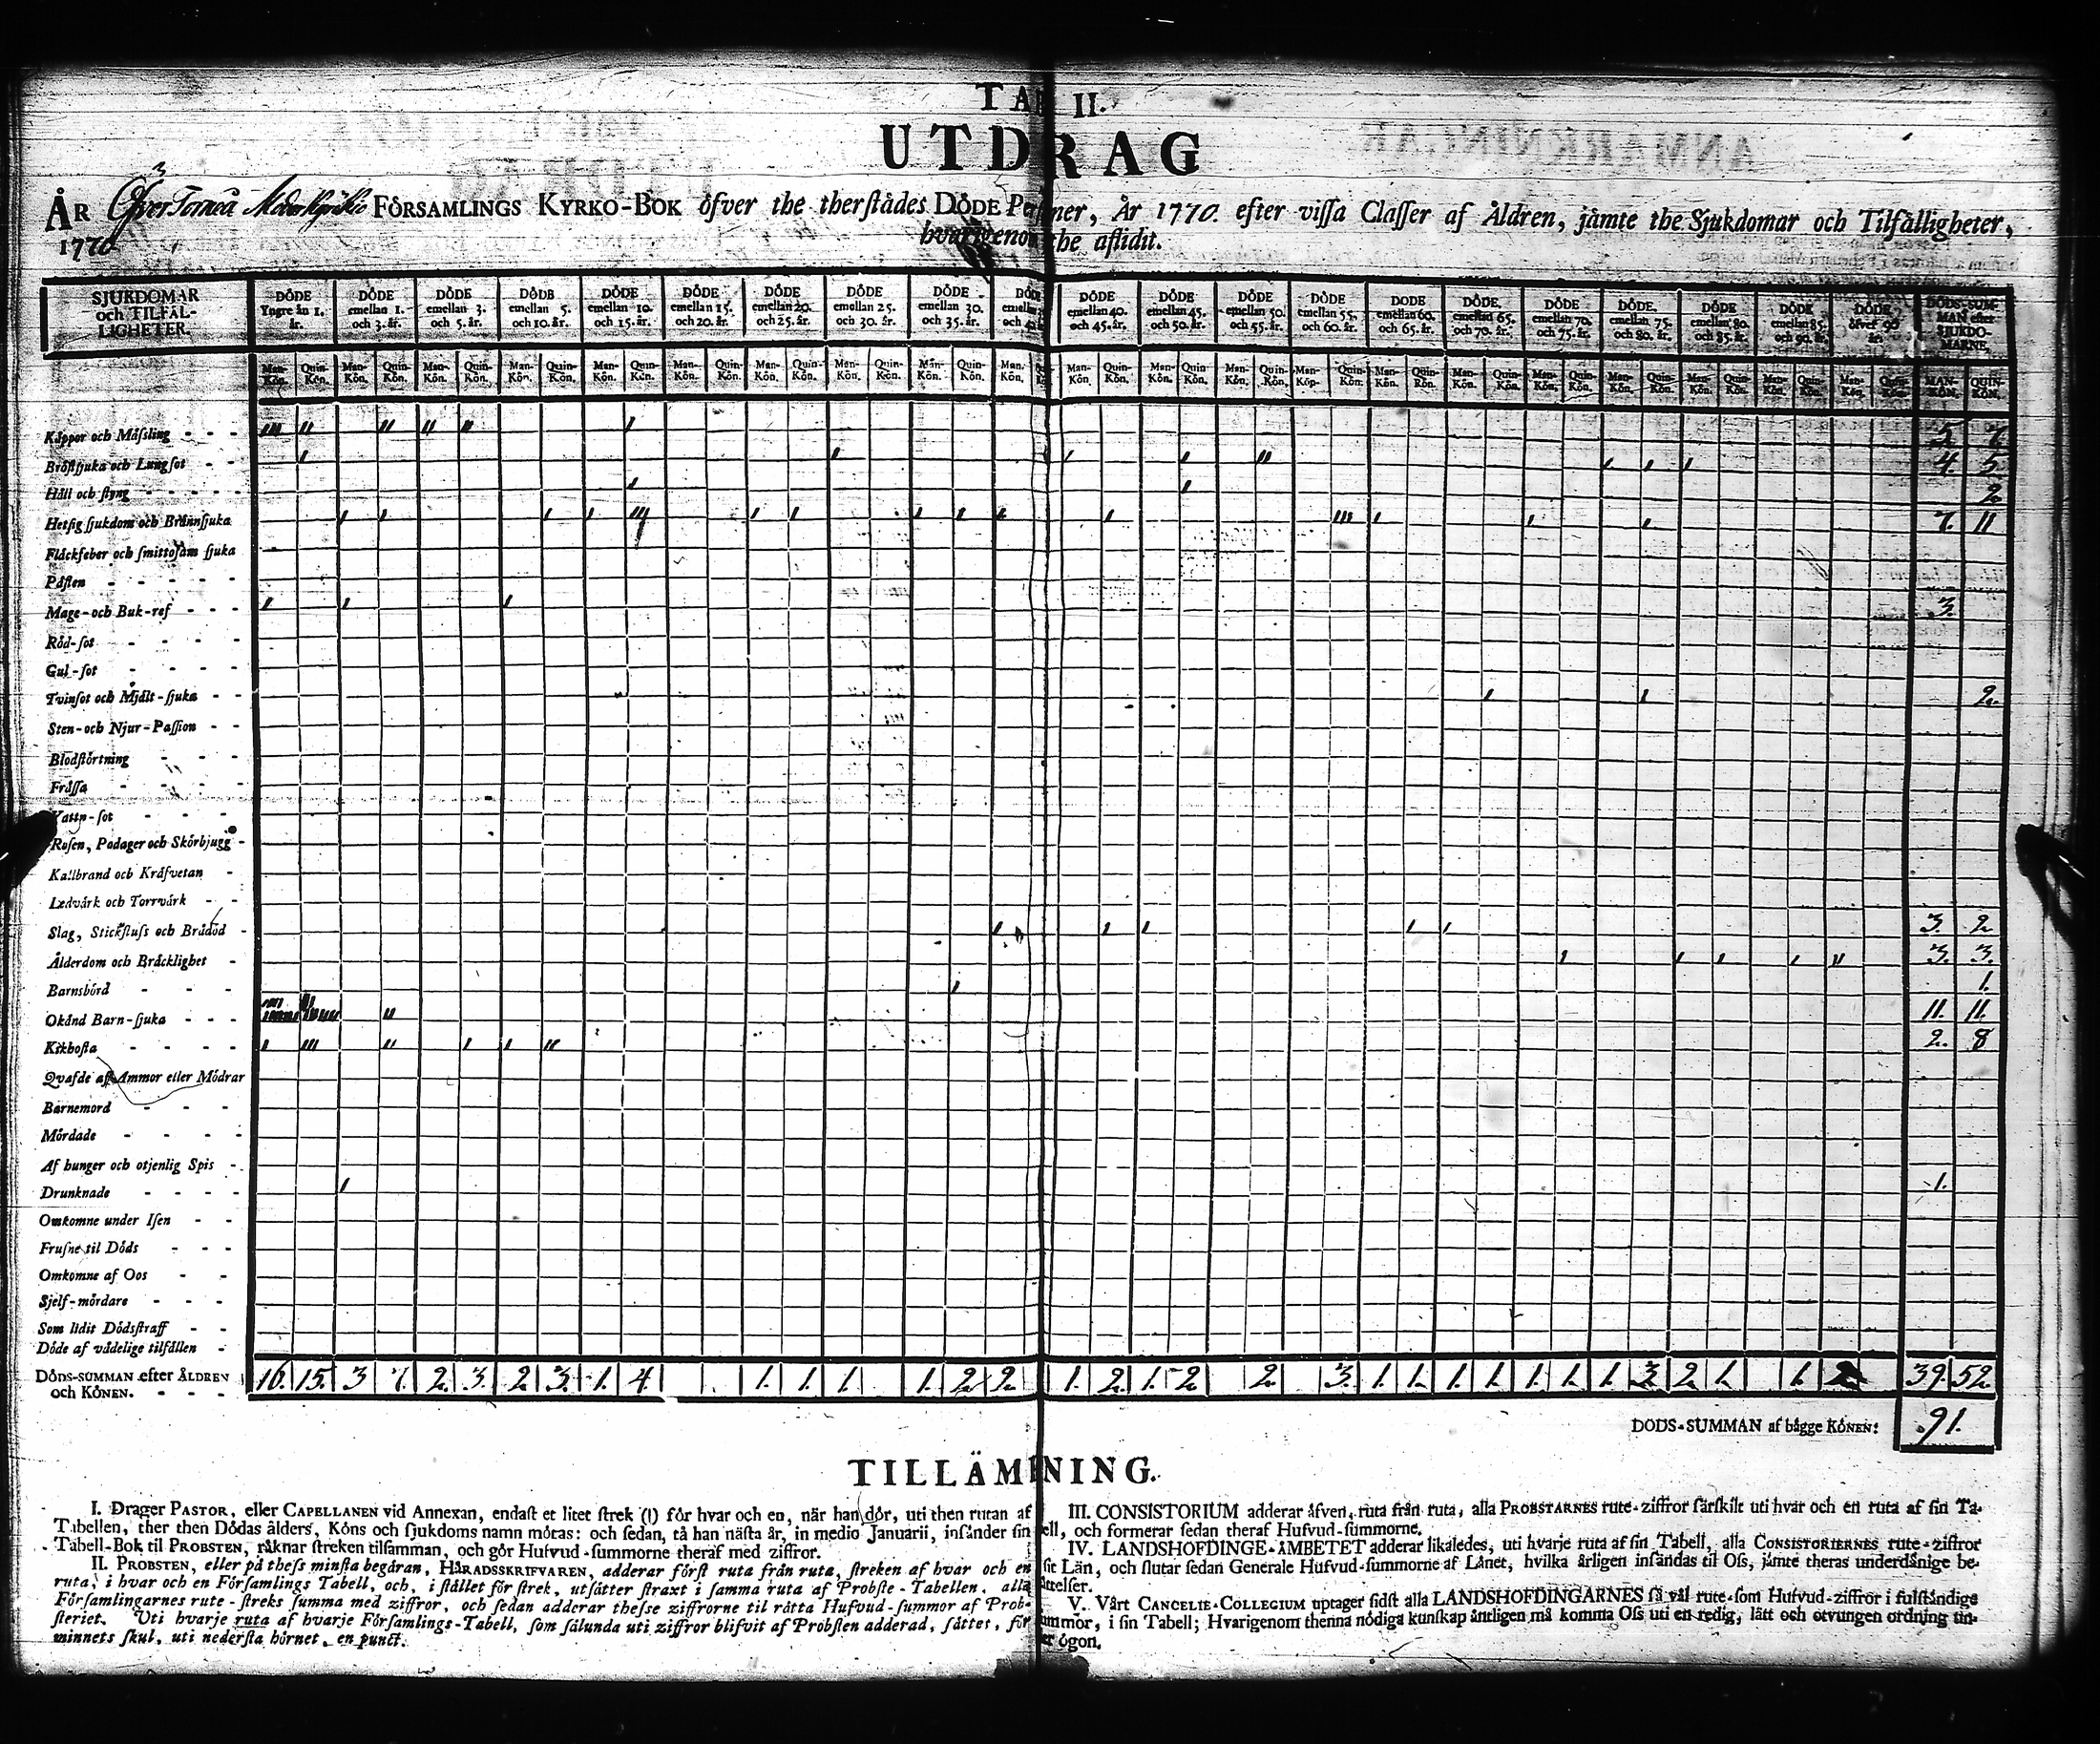 TA II.
UTDRAG
ÅR Öfver Torneå Moderkyrkio FÖRSAMLINGS KYRKO-BOK öfver the therstädes DÖDE Per ner, År 1770. efter vissa Classer af Åldren, jämte the Sjukdomar och Tilfälligheter,
1770 hvarigenom the aflidit.
SJUKDOMAR och TILFÄL-LIGHETER. DÖDE Yngre än 1. år. DÖDE emellan 1. och 3. år. DÖDE emellan 3. och 5. år. DÖDE emellan 5. och 10. år. DÖDE emellan 10. och 15. år. DÖDE emellan 15. och 20. år. DÖDE emellan 20. och 25. år. DÖDE emellan 25. och 30. år. DÖDE emellan 30. och 35. år. DÖDE DÖDE emellan 40. och 45. år. DÖDE emellan 45. och 50. år. DÖDE emellan 50. och 55. år. DÖDE emellan 55. och 60. år. DÖDE emellan 60. och 65. år. DÖDE emellan 65. och 70. år. DÖDE emellan 70. och 75. år. DÖDE emellan 75. och 80. år. DÖDE emellan 80. och 85. år. DÖDE emellan 85. och 90. år. DÖDE öfver 90 år. DÖDS-SUM-MAN efter SJUKDO-MARNE.
Man-Kön. Quin-Kön. Man-Kön. Quin-Kön. Man-Kön. Quin-Kön. Man-Kön. Quin-Kön. Man-Kön. Quin-Kön. Man-Kön. Quin-Kön. Man-Kön. Quin-Kön. Man-Kön. Quin-Kön. Man-Kön. Quin-Kön. Man-Kön. Man-Kön. Quin-Kön. Man-Kön. Quin-Kön. Man-Kön. Quin-Kön. Man-Kön. Quin-Kön. Man-Kön. Quin-Kön. Man-Kön. Quin-Kön. Man-Kön. Quin-Kön. Man-Kön. Quin-Kön. Man-Kön. Quin-Kön. Man-Kön. Quin-Kön. Man-Kön. Quin-Kön. MAN-KÖN. QUIN-KÖN.
Koppor och Mässling - - - 5. 7.
Bröstsjuka och Lungsot - - 4. 5.
Håll och styng - - - - - 2.
Hetsig sjukdom och Brännsjuka 7. 11
Fläckfeber och smittosam sjuka
Pästen - - - - -
Mage-och Buk-ref - - - 3.
Röd-sot - - - -
Gul-sot - - - -
Tvinsot och Mjält-sjuka - - 2.
Sten-och Njur-Passion - -
Blodstörtning - - -
Frässa - - - -
Vattu-sot - - -
Rosen, Podager och Skörbjugg -
Kallbrand och Kräfvetan -
Ledvärk och Torrvärk - -
Slag, Stickfluss och Brådöd - 3. 2
Ålderdom och Bräcklighet - 3. 3.
Barnsbörd - - - 1.
Okänd Barn-sjuka - - - 11. 11.
Kikhosta - - - - 2. 8
Qvafde af Ammor eller Mödrar
Barnemord - - -
Mördade - - - -
Af hunger och otjenlig Spis -
Drunknade - - - - 1.
Omkomne under Isen - -
Frusne til Döds - - -
Omkomne af Oos - -
Sjelf-mördare - - -
Som lidit Dödsstraff - -
Döde af vådelige tilfällen -
DÖDS-SUMMAN efter ÅLDREN och KÖNEN. - - - 16. 15. 3 7. 2. 3. 2 3. 1. 4 1. 1. 1 1. 2. 2. 1. 2. 1. 2 2. 3. 1 1. 1. 1 1 1. 1 3 2 1. 1. 2 39. 52.
DÖDS-SUMMAN af bägge KÖNEN: 91.
TILLÄMNING.
I. Drager PASTOR, eller CAPELLANEN vid Annexan, endast et litet strek (l) för hvar och en, när han dör, uti then rutan af
Tabellen, ther then Dödas ålders, Köns och sjukdoms namn mötas: och sedan, tå han nästa år, in medio Januarii, insänder sin
Tabell-Bok til PROBSTEN, räknar streken tilsamman, och gör Hufvud-summorne theraf med ziffror.
II. PROBSTEN, eller på thess minsta begäran, HÄRADSSKRIFVAREN, adderar först ruta från ruta, streken af hvar och en
ruta, i hvar och en Församlings Tabell, och, i stället för strek, utsätter straxt i samma ruta af Probste-Tabellen, alla
Församlingarnes rute-streks summa med ziffror, och sedan adderar thesse ziffrorne til rätta Hufvud-summor af Prob-
steriet. Uti hvarje ruta af hvarje Församlings-Tabell, som sålunda uti ziffror blifvit af Probsten adderad, sättes, för
minnets skul, uti nedersta hörnet, en punct.
III. CONSISTORIUM adderar äfven, ruta från ruta, alla PROBSTARNES rute-ziffror särskilt uti hvar och en ruta af sin Ta-
ell, och formerar sedan theraf Hufvud-summorne.
IV. LANDSHÖFDINGE-ÄMBETET adderar likaledes, uti hvarje ruta af sin Tabell, alla CONSISTORIERNES rute-ziffror
sit Län, och slutar sedan Generale Hufvud-summorne af Länet, hvilka årligen insändas til Oss, jämte theras underdånige be-
rättelser.
V. Vårt CANCELIE-COLLEGIUM uptager sidst alla LANDSHÖFDINGARNES så väl rute-som Hufvud-ziffror i fulständige
ummor, i sin Tabell; Hvarigenom thenna nödiga kunskap äntligen må komma Oss uti en redig, lätt och otvungen ordning un-
er ögon.